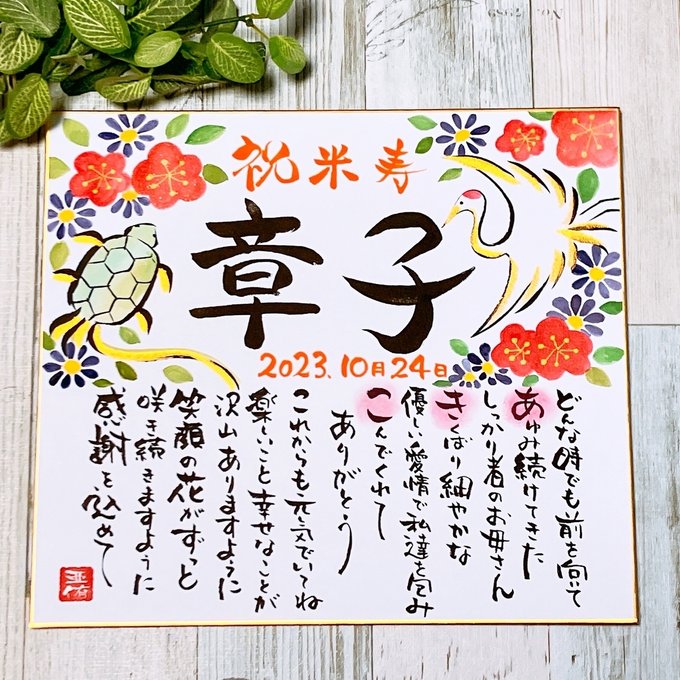 祝米寿
章子
2023.10月24日
どんな時でも前を向いて
あゆみ続けてきた
しっかり者のお母さん
きくばり細やかな
優しい愛情で私達を包み
こんでくれて
ありがとう
これからも元気でいてね
楽しいこと幸せなことが
沢山ありますように
笑顔の花がずっと
咲き続きますように
感謝を込めて